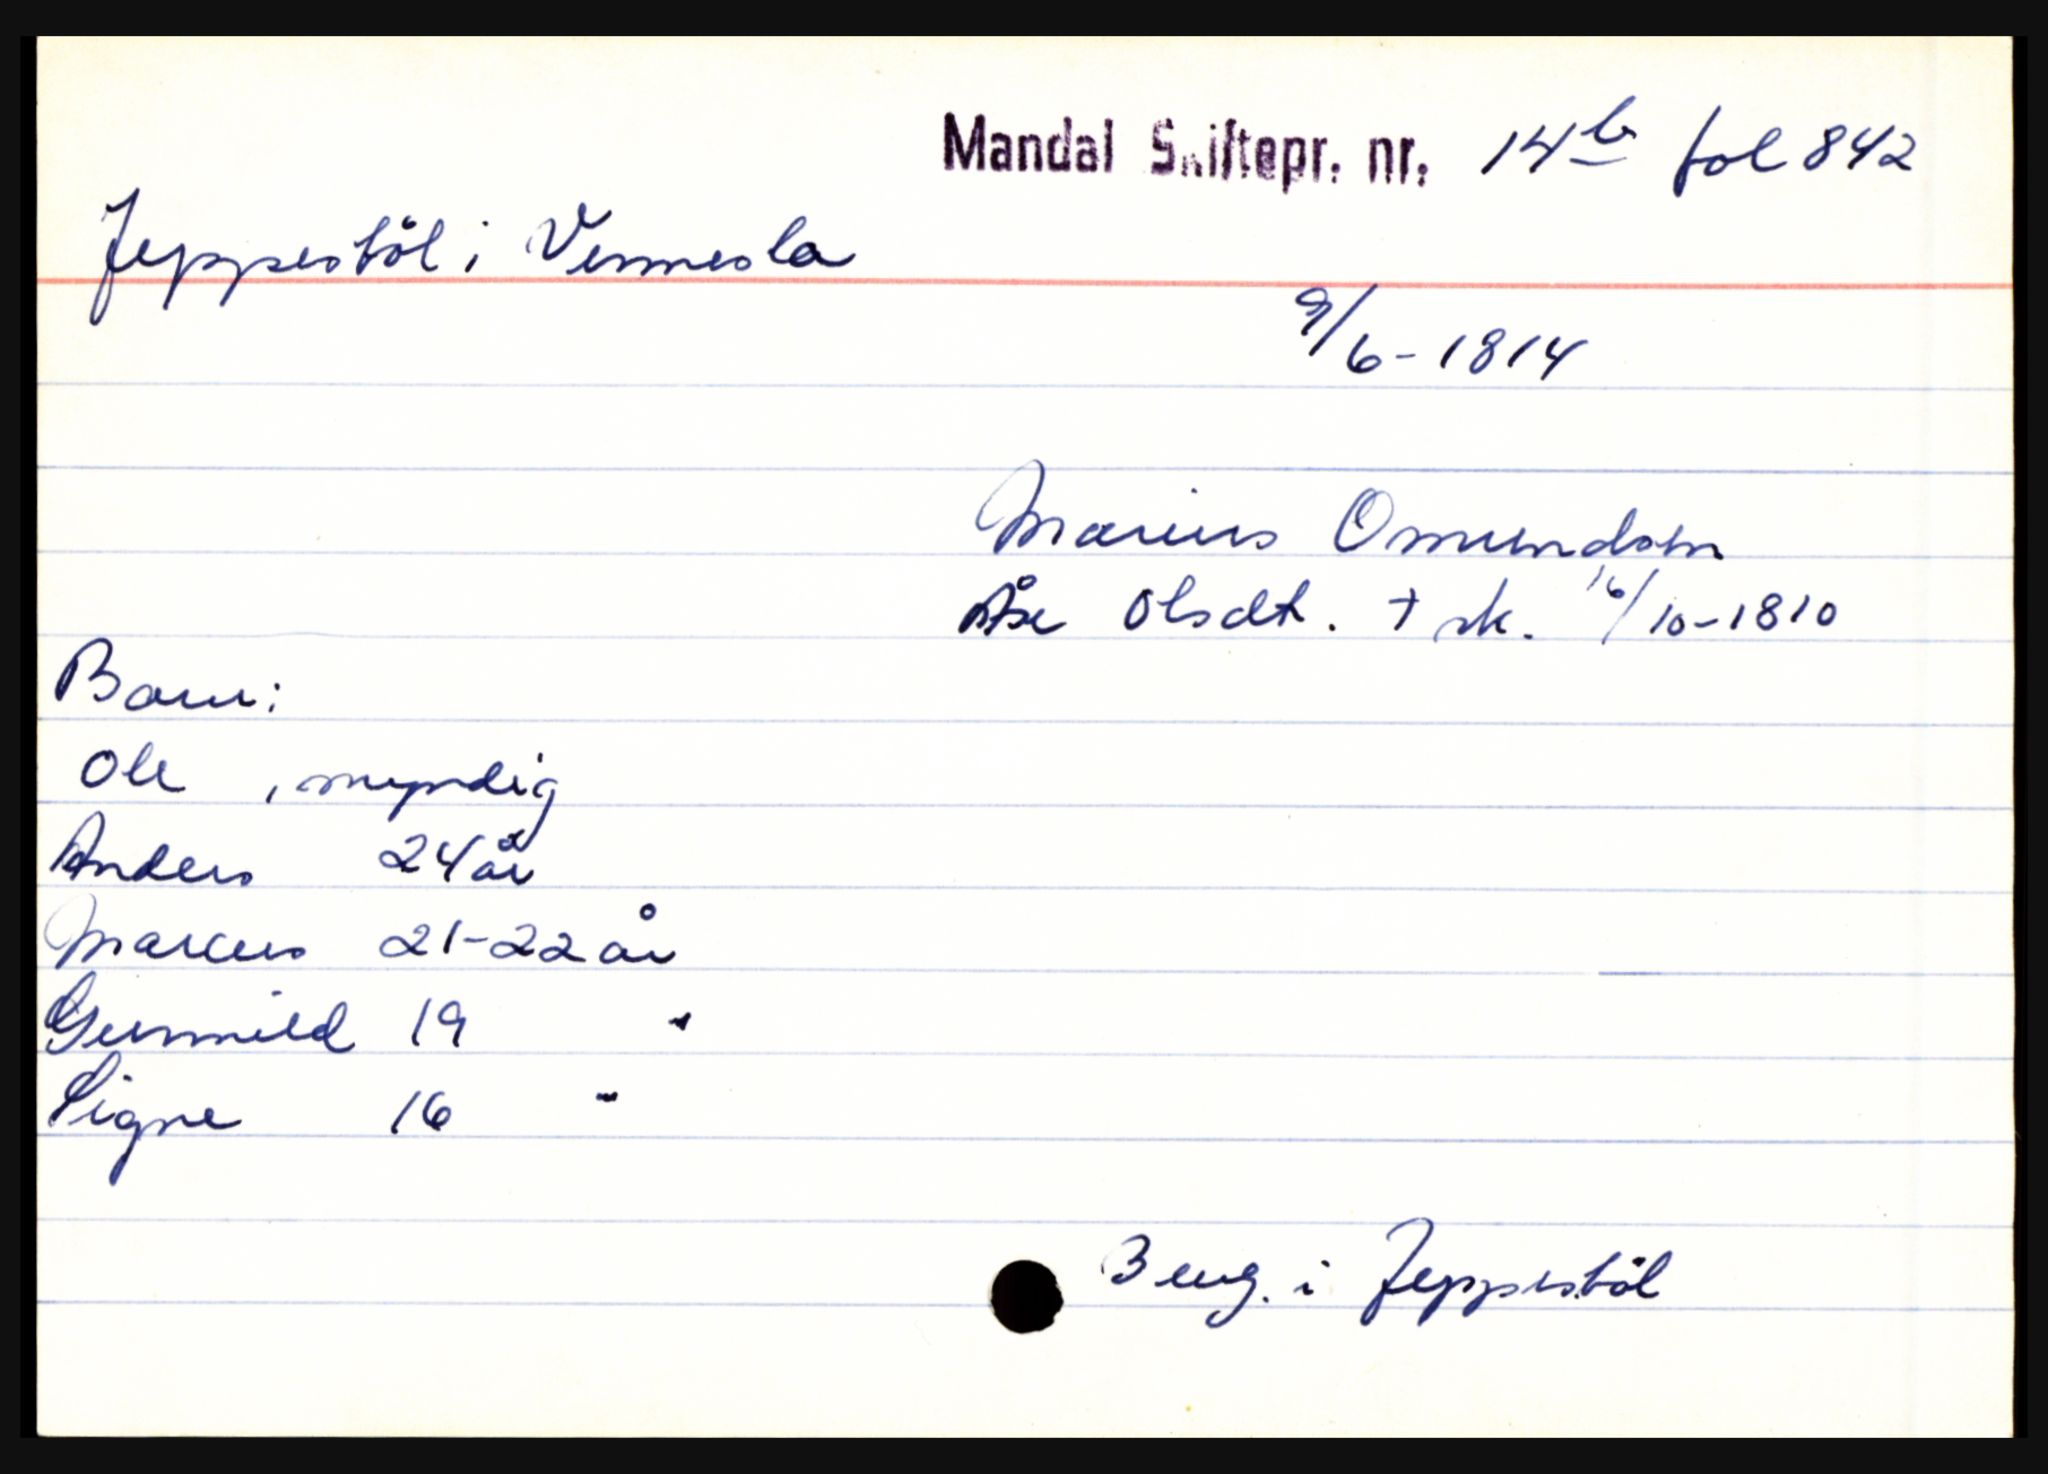 Mandal Skiftepr. nr. 14b fol 842
Jeppestöl i Vennesla
9/6-1814
Marius Omundsen
Åse Olsdt. + sk. 16/10-1810
Barn:
Ole , myndig
Anders 24 år
Marcus 21-22 år
Gunnild 19 "
Signe 16 "
Beng. i Jeppestöl